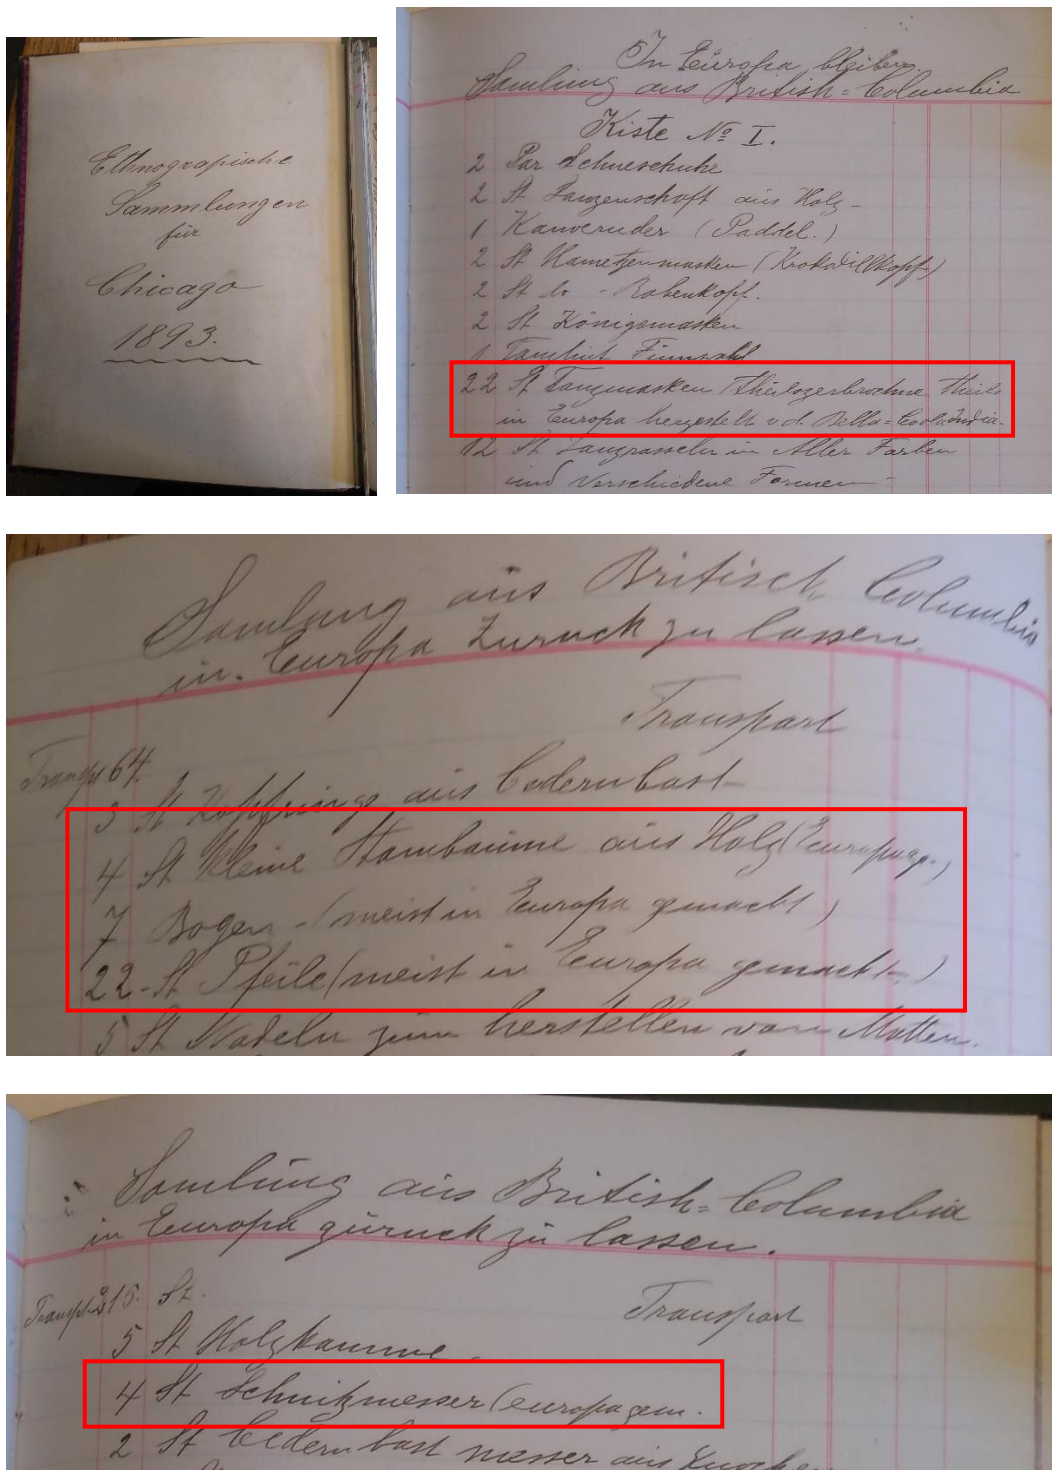 Ethnografische
Sammlungen
für
Chicago
1893.
In Europa bleiben.
Samlung aus British=Columbia
Kiste No I.
2 Par Schneschuhe
2 St Lanzenschaft aus Holz -
1 Kanoeruder (Paddel.)
2 St Hametzenmasken (Krokodillkopf)
2 St do - Rabenkopf.
2 St Königsmasken
1
22 St Tanzmasken theils
in Europa hergestellt v d. Bella=Coola India.
12 St Tanzrasseln in Aller Farben
und Verschiedene Formen -
Samlung aus Britisch Columbia
in. Europa Zuruck zu lassen.
Transport
Transpt 64.
3 St Kopfringe aus Cedernbast -
4 St Kleine Stambaume aus Holz (Europa g.)
7 Bogen - (meist in Europa gemacht)
22 - St Pfeile (meist in Europa gemacht -)
5 St Nadeln zum herstellen von Matten.
Samlung aus British=Columbia
in Europa züruck zu lassen.
Transpt 215. St.
Transport
5 St Holzkamme -
4 St Schnitzmesser (europa gem.
2 St Cedernbast messer aus Knochen